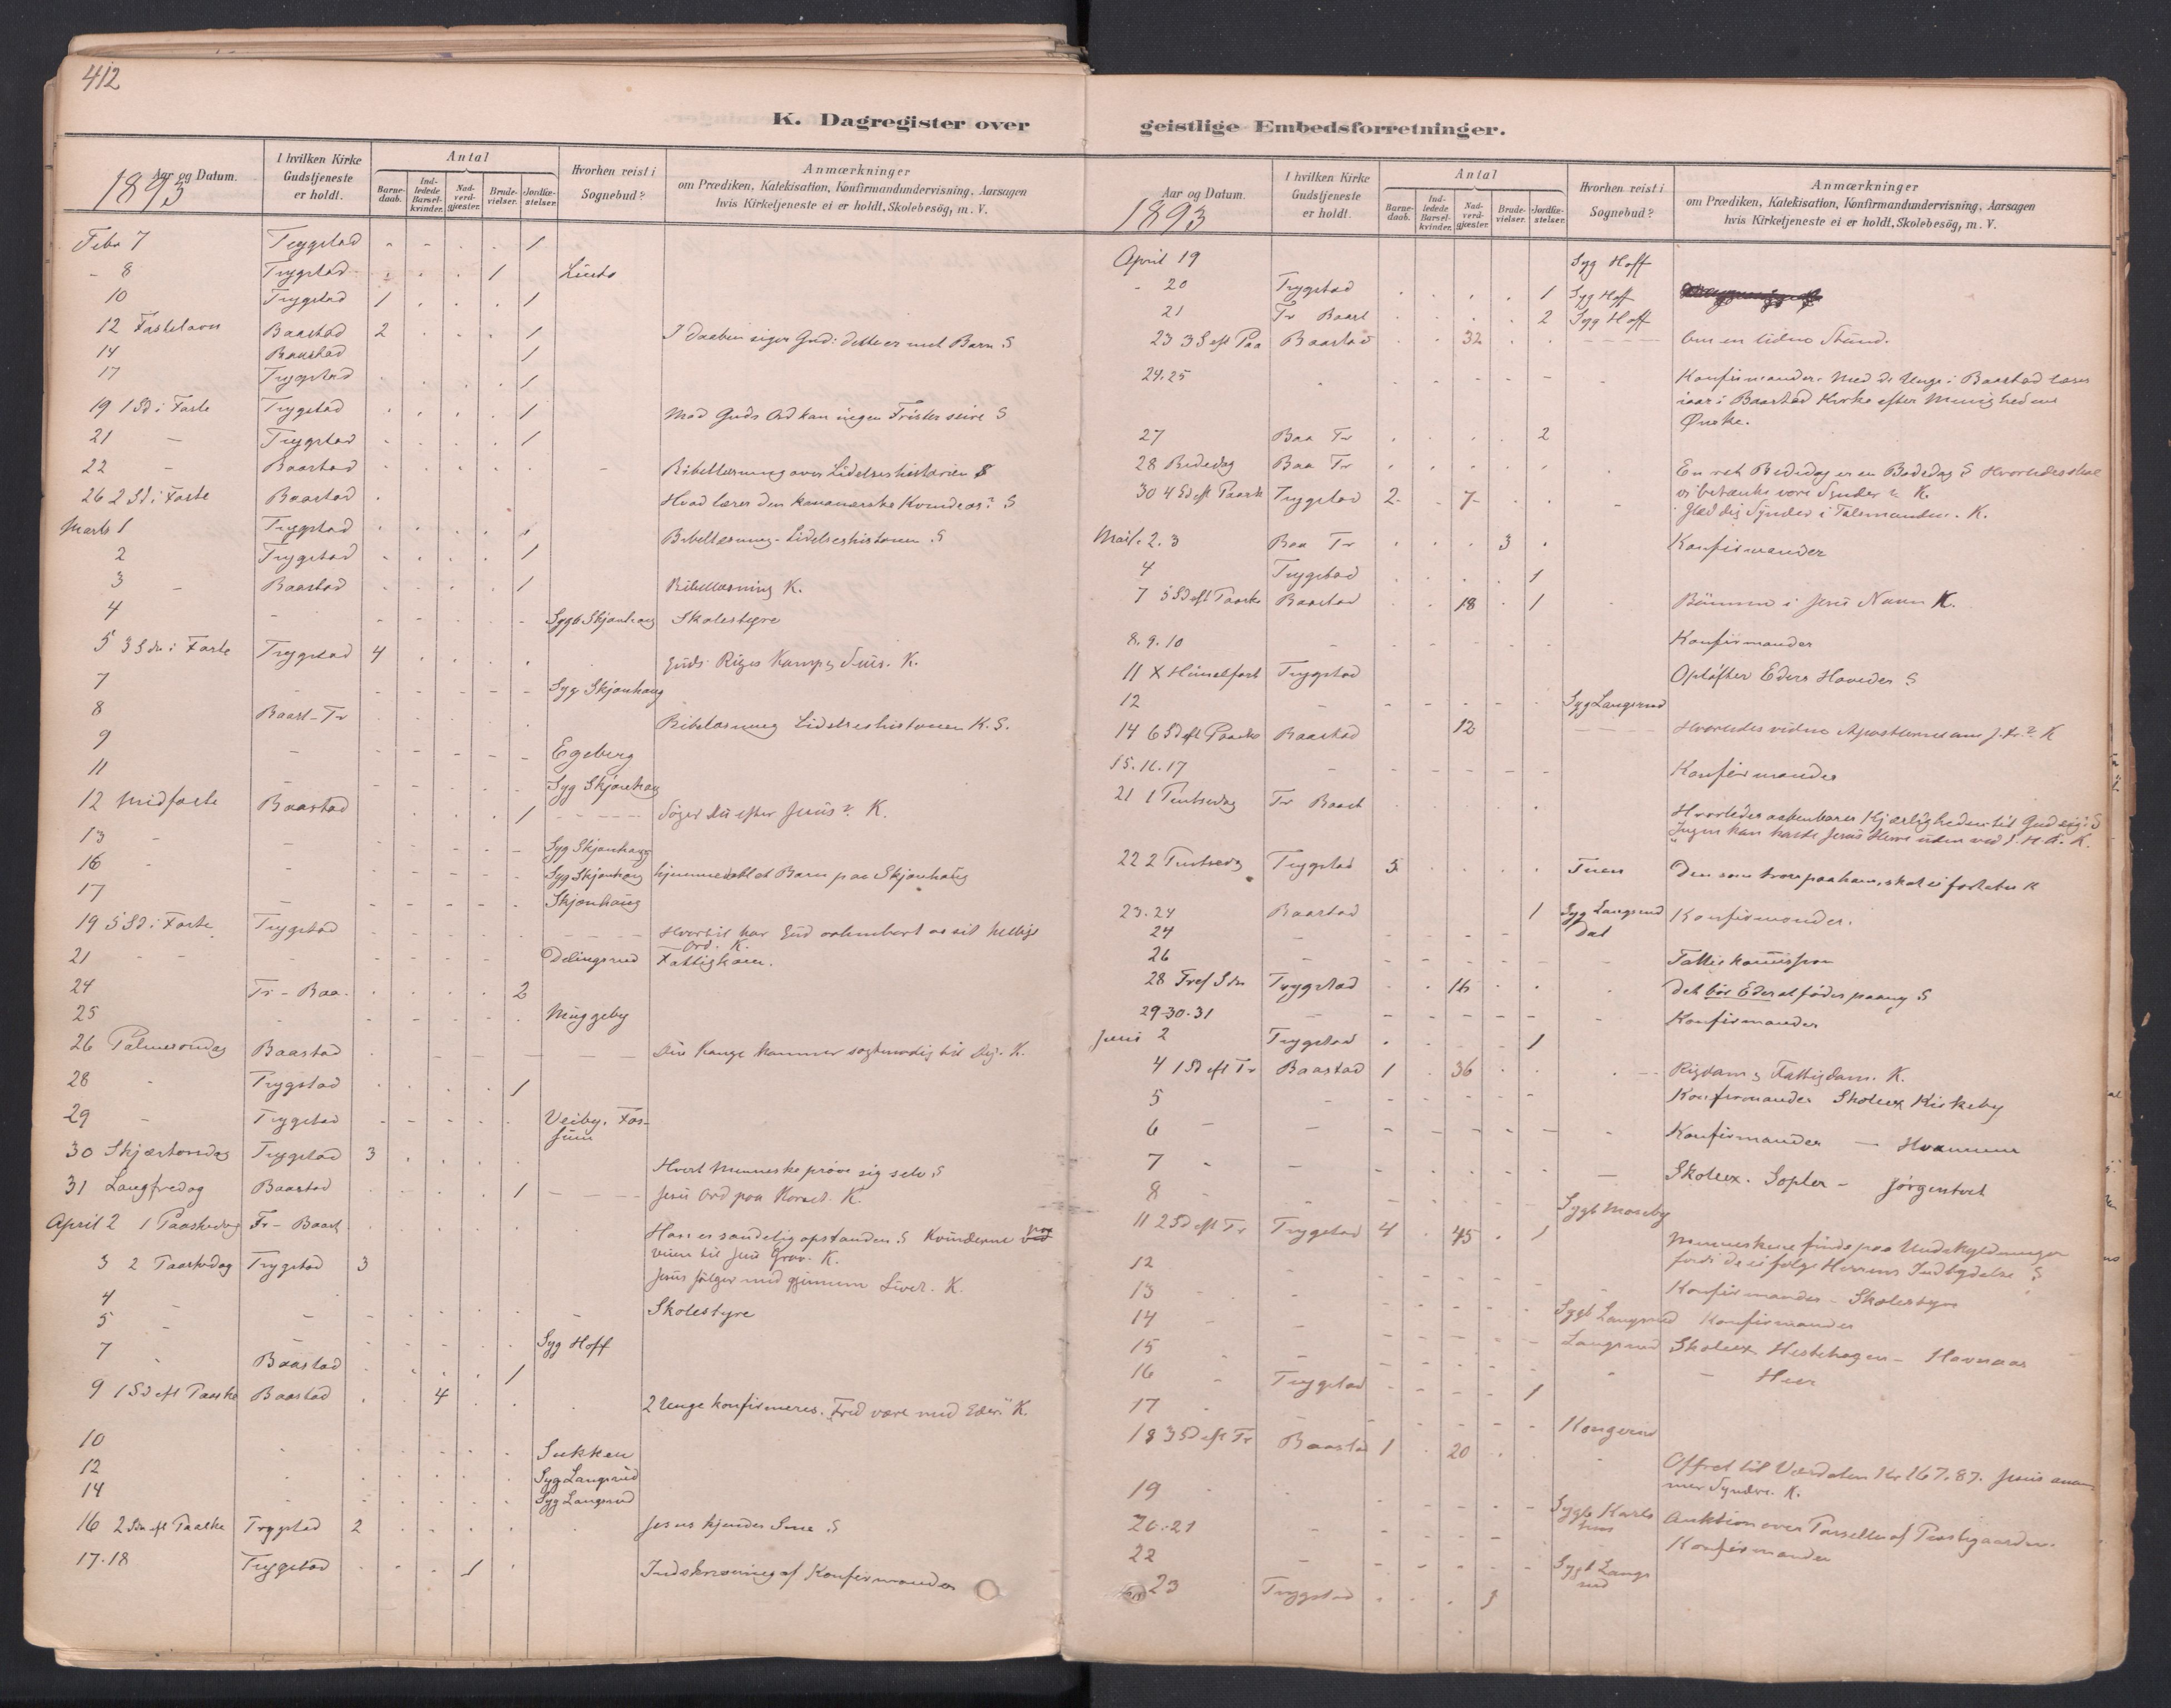 412
K. Dagregister over
Aar og Datum. I hvilken Kirke Gudstjeneste er holdt. Antal Barne-daab. Ind-ledede Barsel-kvinder. Nad-verd-gjæster. Brude-vielser. Jordfæ-stelser. Hvorhen reist i Sognebud? Anmærkninger om Prædiken, Katekisation, Konfirmandundervisning, Aarsagen hvis Kirketjeneste ei er holdt, Skolebesög, m. V.
1893
Febr 7 Trygstad - - . . 1
- 8 Trygstad . . . 1
10 Trygstad 1 . . . 1
12 Fastelavn Baastad 2 . . . 1 I Daaben siger Gud: dette er mit Barn S
14 Baastad 1
17 Trygstad . . . . 1
19 1 Sd i Faste Trygstad . . . . 1 Mod Guds Ord kan ingen Frister seire S
21 - Trygstad - . . . 1
22 - Baastad . . . . . - Bibellæsning over Lidelseshistorien S
26 2 Sd i Faste Baastad . Hvad lærer den kananæiske Kvinde os? S
Marts 1 Trygstad . . . . . Bibellæsning - Lidelseshistorien S
2 Trygstad - . . . 1
3 - Baastad . . . . 1 Bibellæsning K.
4 - - - - - - Sygb Skjønhaug Skolestyre
5 3 Sdn i Faste Trygstad 4 . . . . Guds Riges Kamp og Seier. K.
7 - - - - - - Syg Skjønhaug
8 Baast - Tr . . . . . Bibellæsning Lidelseshistorien K. S.
9 - - - - - - Egeberg
11 - - - - - . Syg Skjønhaug
12 Midfaste Baastad . . . 1 - - - - Søger du efter Jesus? K.
13 - - - - - - - Syg Skjønhaug
16 - - - - - - - Syg Skjønhaug hjemmedøbt et Barn paa Skjønhaug
17 - - - - - . Skjønhaug
19 5 Sd i Faste Trygstad - - - - - - - - - Hvortil har Gud aabenbart os sit hellige
Ord. K.
21 - - - - - - - Delingsrud Fattigkom.
24 Tr - Baa. . . . . 2
25 - - - - - . Muggeby
26 Palmesondag Baastad . - - - - - Din Konge kommer sagtmodig til dig. K.
28 - Trygstad . . . . 1
29 - Trygstad - - - - - Veiby. Fos-
sum
30 Skjærtorsdag Trygstad 3 . . . . Hvert Menneske prøve sig selv S
31 Langfredag Baastad . . . . 1 - - - - Jesu Ord paa Korset. K.
April 2 1 Paaskedag Tr - Baast . . . . . Han er sandelig opstanden S Kvinderne paa
veien til Jesu Grav. K.
3 2 Paaskedag Trygstad 3 Jesus følger med gjennem Livet. K.
4 - - - - - - - Skolestyre
5 - - - - - . . Syg Hoff
7 . Baastad . . . . 1
9 1 Sd eft Paaske Baastad . . 4 . . . 2 Unge konfirmeres. Fred være med Eder." K.
10 - . . . . . Sukken
12 - - . . . . Syg Langsrud
14 - - . . . . Syg Langsrud
16 2 Sdn eft Paaske Trygstad 2 . . . . . Jesus kjender Sine S
17.18 Trygstad . - . 1 . Indskrivning af Konfirmander
geistlige Embedsforretninger.
Aar og Datum. I hvilken Kirke Gudstjeneste er holdt. Antal Barne-daab. Ind-ledede Barsel-kvinder. Nad-verd-gjæster. Brude-vielser. Jordfæ-stelser. Hvorhen reist i Sognebud? Anmærkninger om Prædiken, Katekisation, Konfirmandundervisning, Aarsagen hvis Kirketjeneste ei er holdt, Skolebesög, m. V.
1893
April 19 Syg Hoff
- 20 Trygstad . . . . 1 Syg Hoff
21 Tr Baast . . . . 2 Syg Hoff
23 3 S eft Paa Baastad . . 32 . . - - - - - Om en liden Stund.
24.25 - . . . - - - Konfirmander. Med de Unge i Baastad læses
iaar i Baastad Kirke efter Menighedens
Ønske.
27 Baa Tr . . . . 2
28 Bededag Baa Tr . . . . . . En ret Bededag er en Bodedag S Hvorledes skal
vi betænke vore Synder? K.
30 4 Sd eft Paaske Trygstad 2 - - 7 - . . - Glæd dig Synder i Talsmanden. K.
Mai 1. 2. 3 Baa Tr . . . 3 . Konfirmander
4 Trygstad . . . . 1
7 5 Sd eft Paaske Baastad . . 18 . 1 - Bønnen i Jesu Navn K.
8. 9. 10 - - - - - - Konfirmander
11 X Himmelfart Trygstad Opløfter Eders Hoveder S
12 - - - - - . Syg Langsrud
14 6 Sd eft Paaske Baastad 12 - - - - Hvorledes vidne Apostlerne om J. Kr.? K
15. 16. 17 - - - - - - Konfirmander
21 1 Pintsedag Tr Baast . . . . . Hvorledes aabenbarer Kjærligheden til Gud sig? S
"Ingen kan kalde Jesus Herre uden ved d. H. A. K.
22 2 Pintsedag Trygstad 5 . . . . Tuen Den som tror paa ham, skal ei fortabes K
23.24 Baastad 1 Syg Langsrud Konfirmander.
24 - - - - - - Dal
26 - - - - - - - Fattigkommission
28 Tref Sdn Trygstad . . 16 . . . Det bør Eder at fødes paany S
29-30-31 - - - - - - - Konfirmander
Juni 2 Trygstad . . - - 1
4 1 Sd eft Tr Baastad 1 . 36 . . . - - Rigdom og Fattigdom. K.
5 - - - - - - Konfirmander Skoleex Kirkeby
6 - - - - - - - - Konfirmander — Hvammen
7 - - - - - - - - Skoleex. Sopler - Jørgentvet
8 - - - - - - - Sygb Moseby
11 2 Sd eft Tr Trygstad 4 . 45 . 1 Menneskene finde paa Undskyldninger
fordi de ei følge Herrens Indbydelse S
12 - - - - - - - Konfirmander - Skolestyre
13 - - - - - - . Sygb Langsrud Konfirmander
14 - - - - - - - Langsrud Skoleex Hestehagen - Havnaas
15 - - - - - - - - Heer
16 - Trygstad - - - - 1
17 - - - - - - Kongsrud
18 3 Sd eft Tr Baastad 1 . 20 . . - Offret til Værdalen Kr 167.87. Jesus anam-
mer Syndere. K.
19 - - - - - - - Sygb Karls
hus Auktion over Parseller af Præstegaarden.
20-21 - - - - - - Konfirmander
22 - - - - - - Sygb Langs
rud
23 Trygstad . . . 1